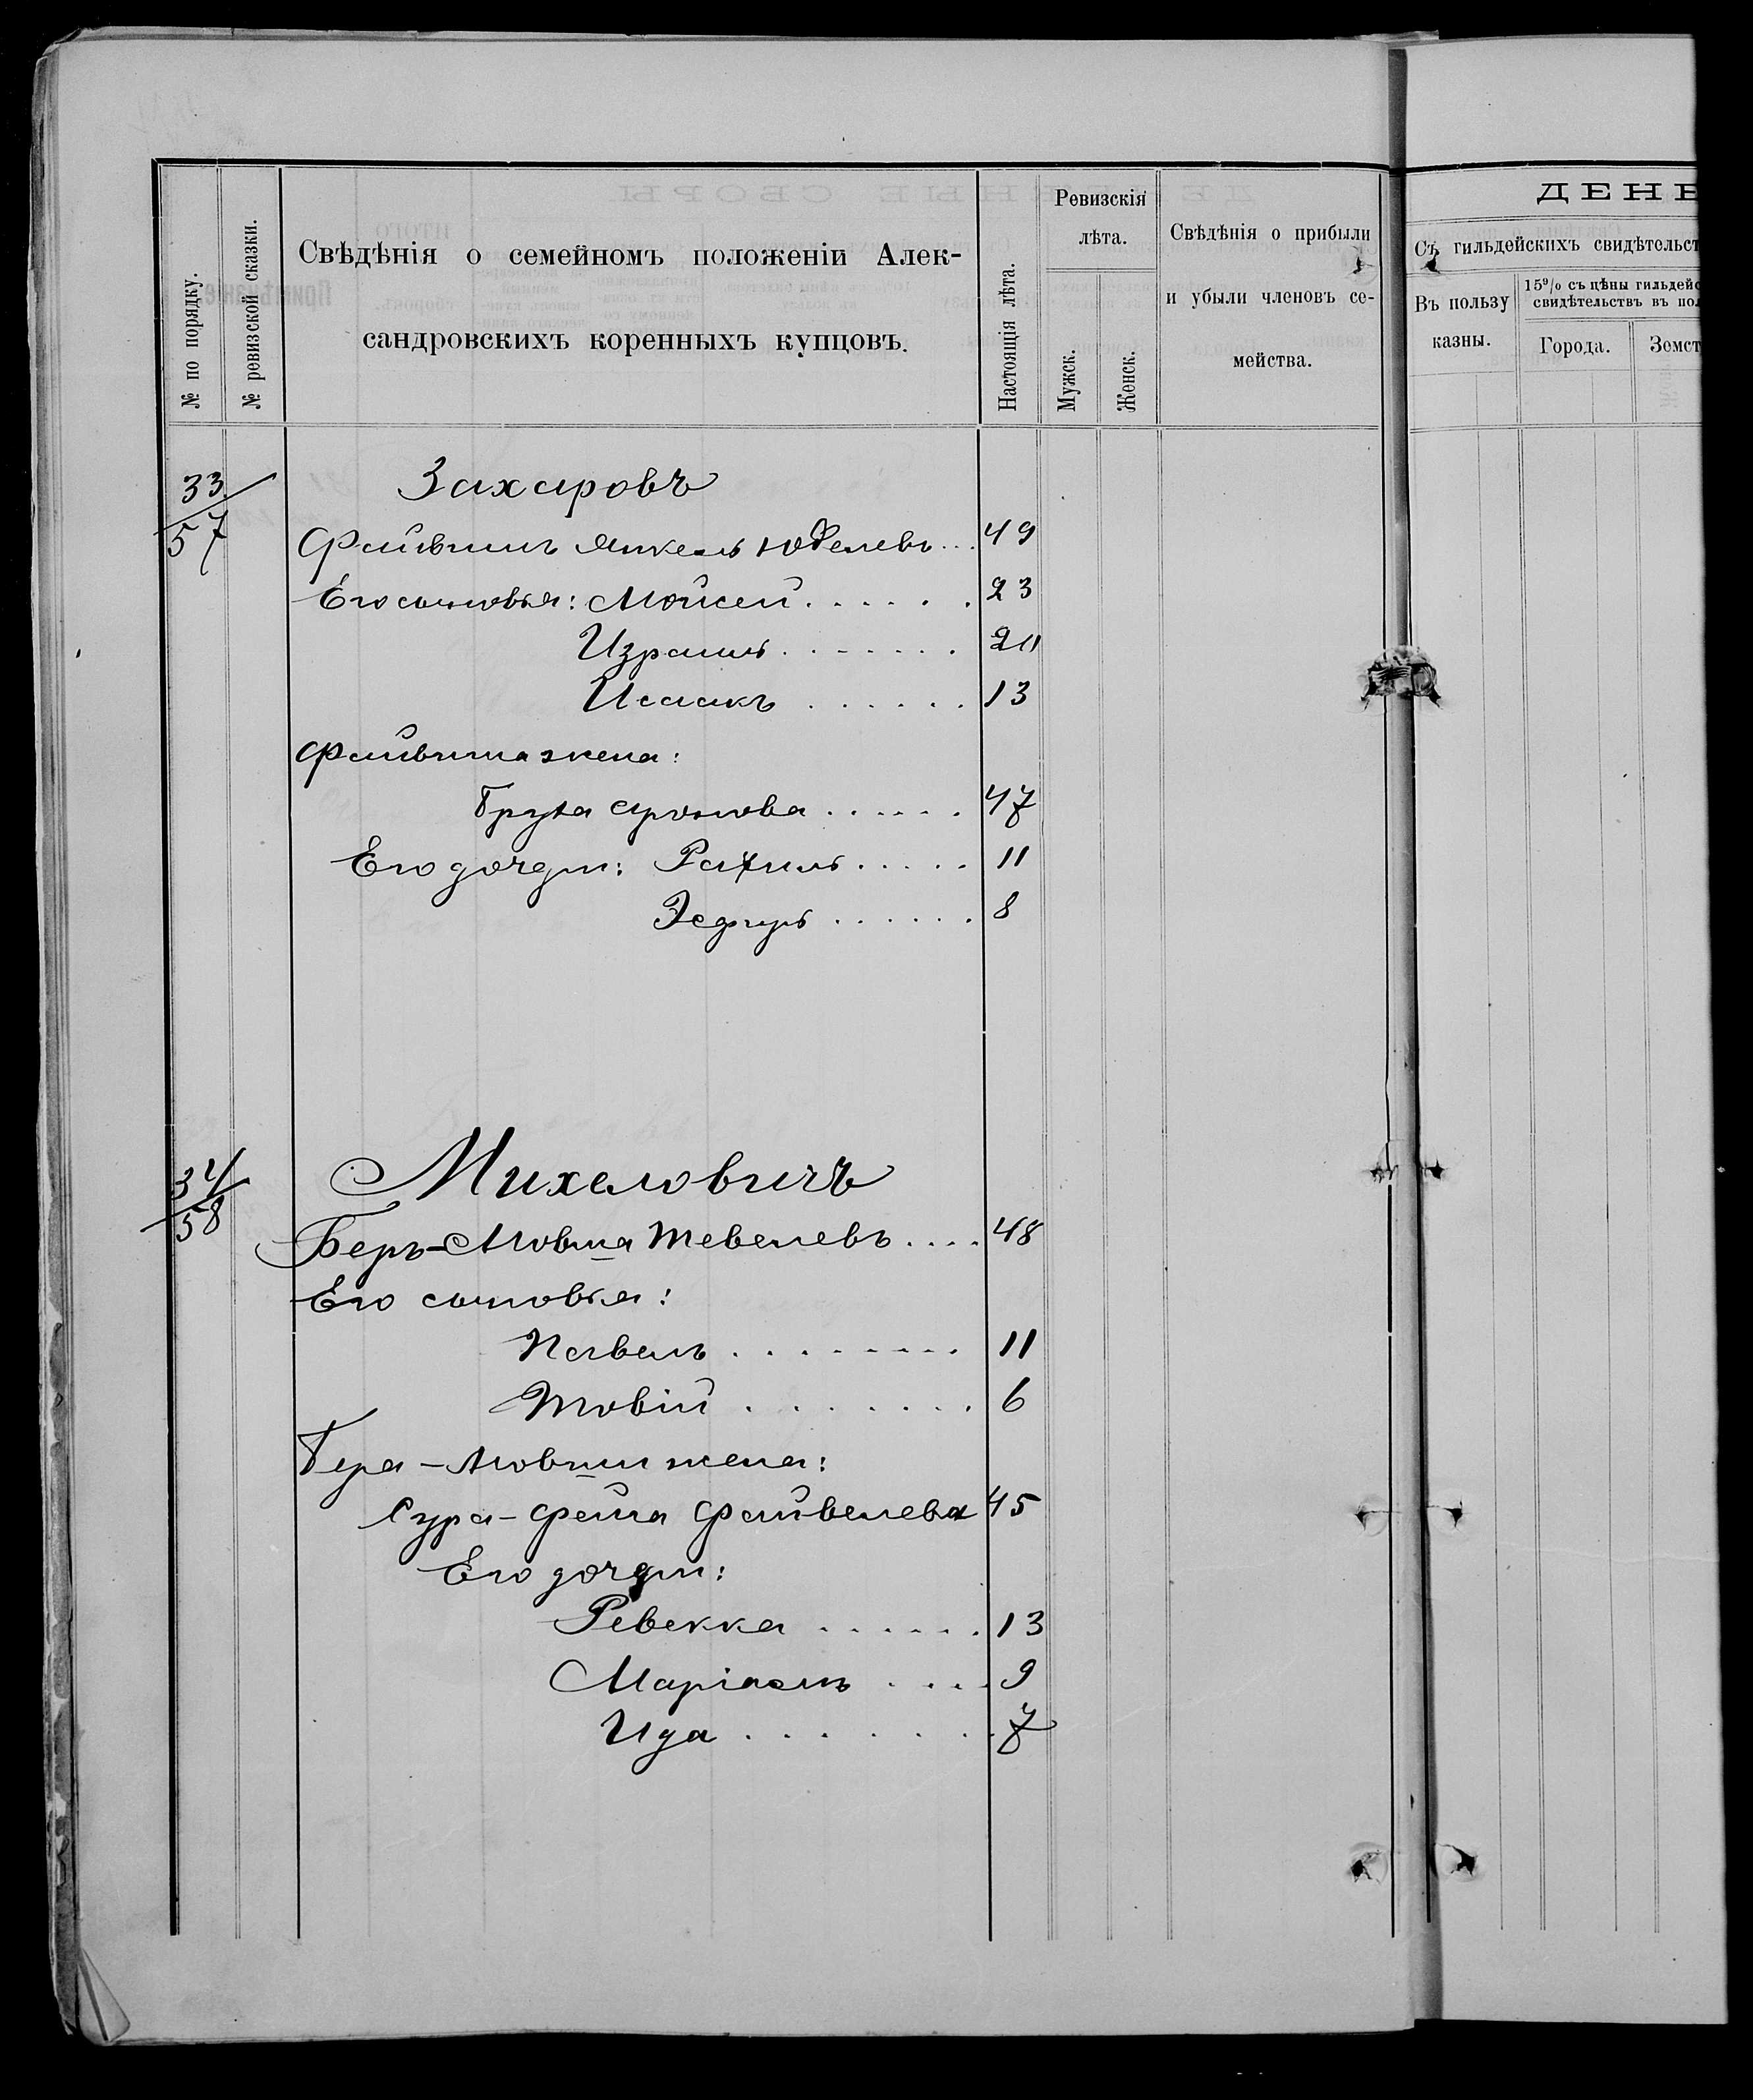 № по порядку.
№ ревизской сказки.
Свѣдѣнія о семейномъ положеніи Алек-
сандровскихъ коренныхъ купцовъ.
Настоящія лѣта.
Ревизскія
лѣта.
Мужск.
Женск.
Свѣдѣнія о прибыли
и убыли членовъ се-
мейства.
ДЕНЕ
Съ гильдейскихъ свидѣтельст
Въ пользу
казны.
15% съ цѣны гильдейс
свидѣтельствъ въ пол
Города.
Земст
33
57
Захаровъ
Файвишъ Янкель Юделевъ... 49
Его сыновья: Мойсей...... 23
Израиль....... 20
Исаакъ...... 13
Файвиша жена:
Груня Аронова...... 47
Его дочери: Рахиль..... 11
Эсфирь...... 8
34
58
Михеловичъ
Беръ-Мовша Тевелевъ.... 48
Его сыновья:
Павелъ........ 11
Товій....... 6
Бера-Мовши жена:
Сура-Фейга Файвелева 45
Его дочери:
Ревекка...... 13
Маріасъ.... 9
Ида....... 7